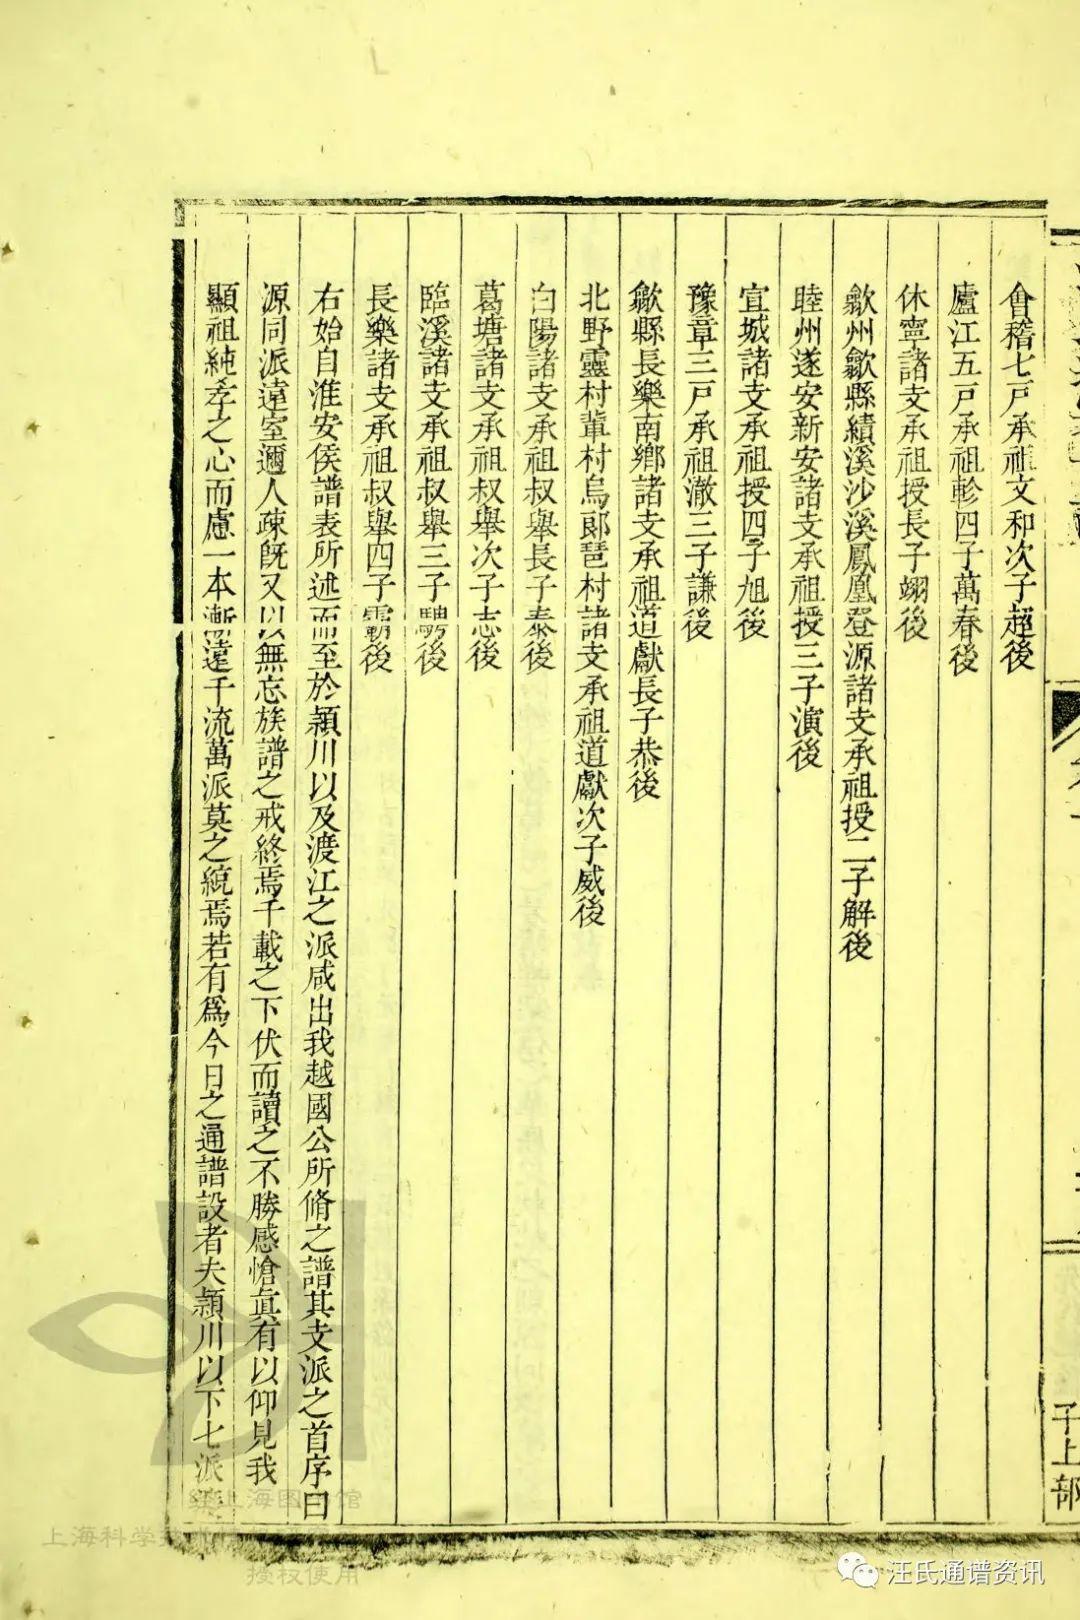 會稽七戸承祖文和次子超後
廬江五戸承祖軫四子萬春後
休寧諸支承祖授長子翊後
歙州歙縣績溪沙溪鳳凰登源諸支承祖授二子解後
睦州遂安新安諸支承祖授三子演後
宜城諸支承祖授四子旭後
豫章三戸承祖澈三子謙後
歙縣長樂南鄉諸支承祖道獻長子恭後
北野靈村葷村烏郎琶村諸支承祖道獻次子威後
白陽諸支承祖叔舉長子泰後
葛塘諸支承祖叔舉次子志後
臨溪諸支承祖叔舉三子騁後
長樂諸支承祖叔舉四子霸後
右始自淮安侯譜表所述而至於潁川以及渡江之派咸出我越國公所脩之譜其支派之首序曰
源同派遠室邇人疎旣又以無忘族譜之戒終焉千載之下伏而讀之不勝感愴眞有以仰見我
顯祖純孝之心而慮一本漸遠千流萬派莫之統焉若有爲今日之通譜設者夫潁川以下七派
子上部
上海图书馆
上海科学技术
授权使用
汪氏通谱资讯